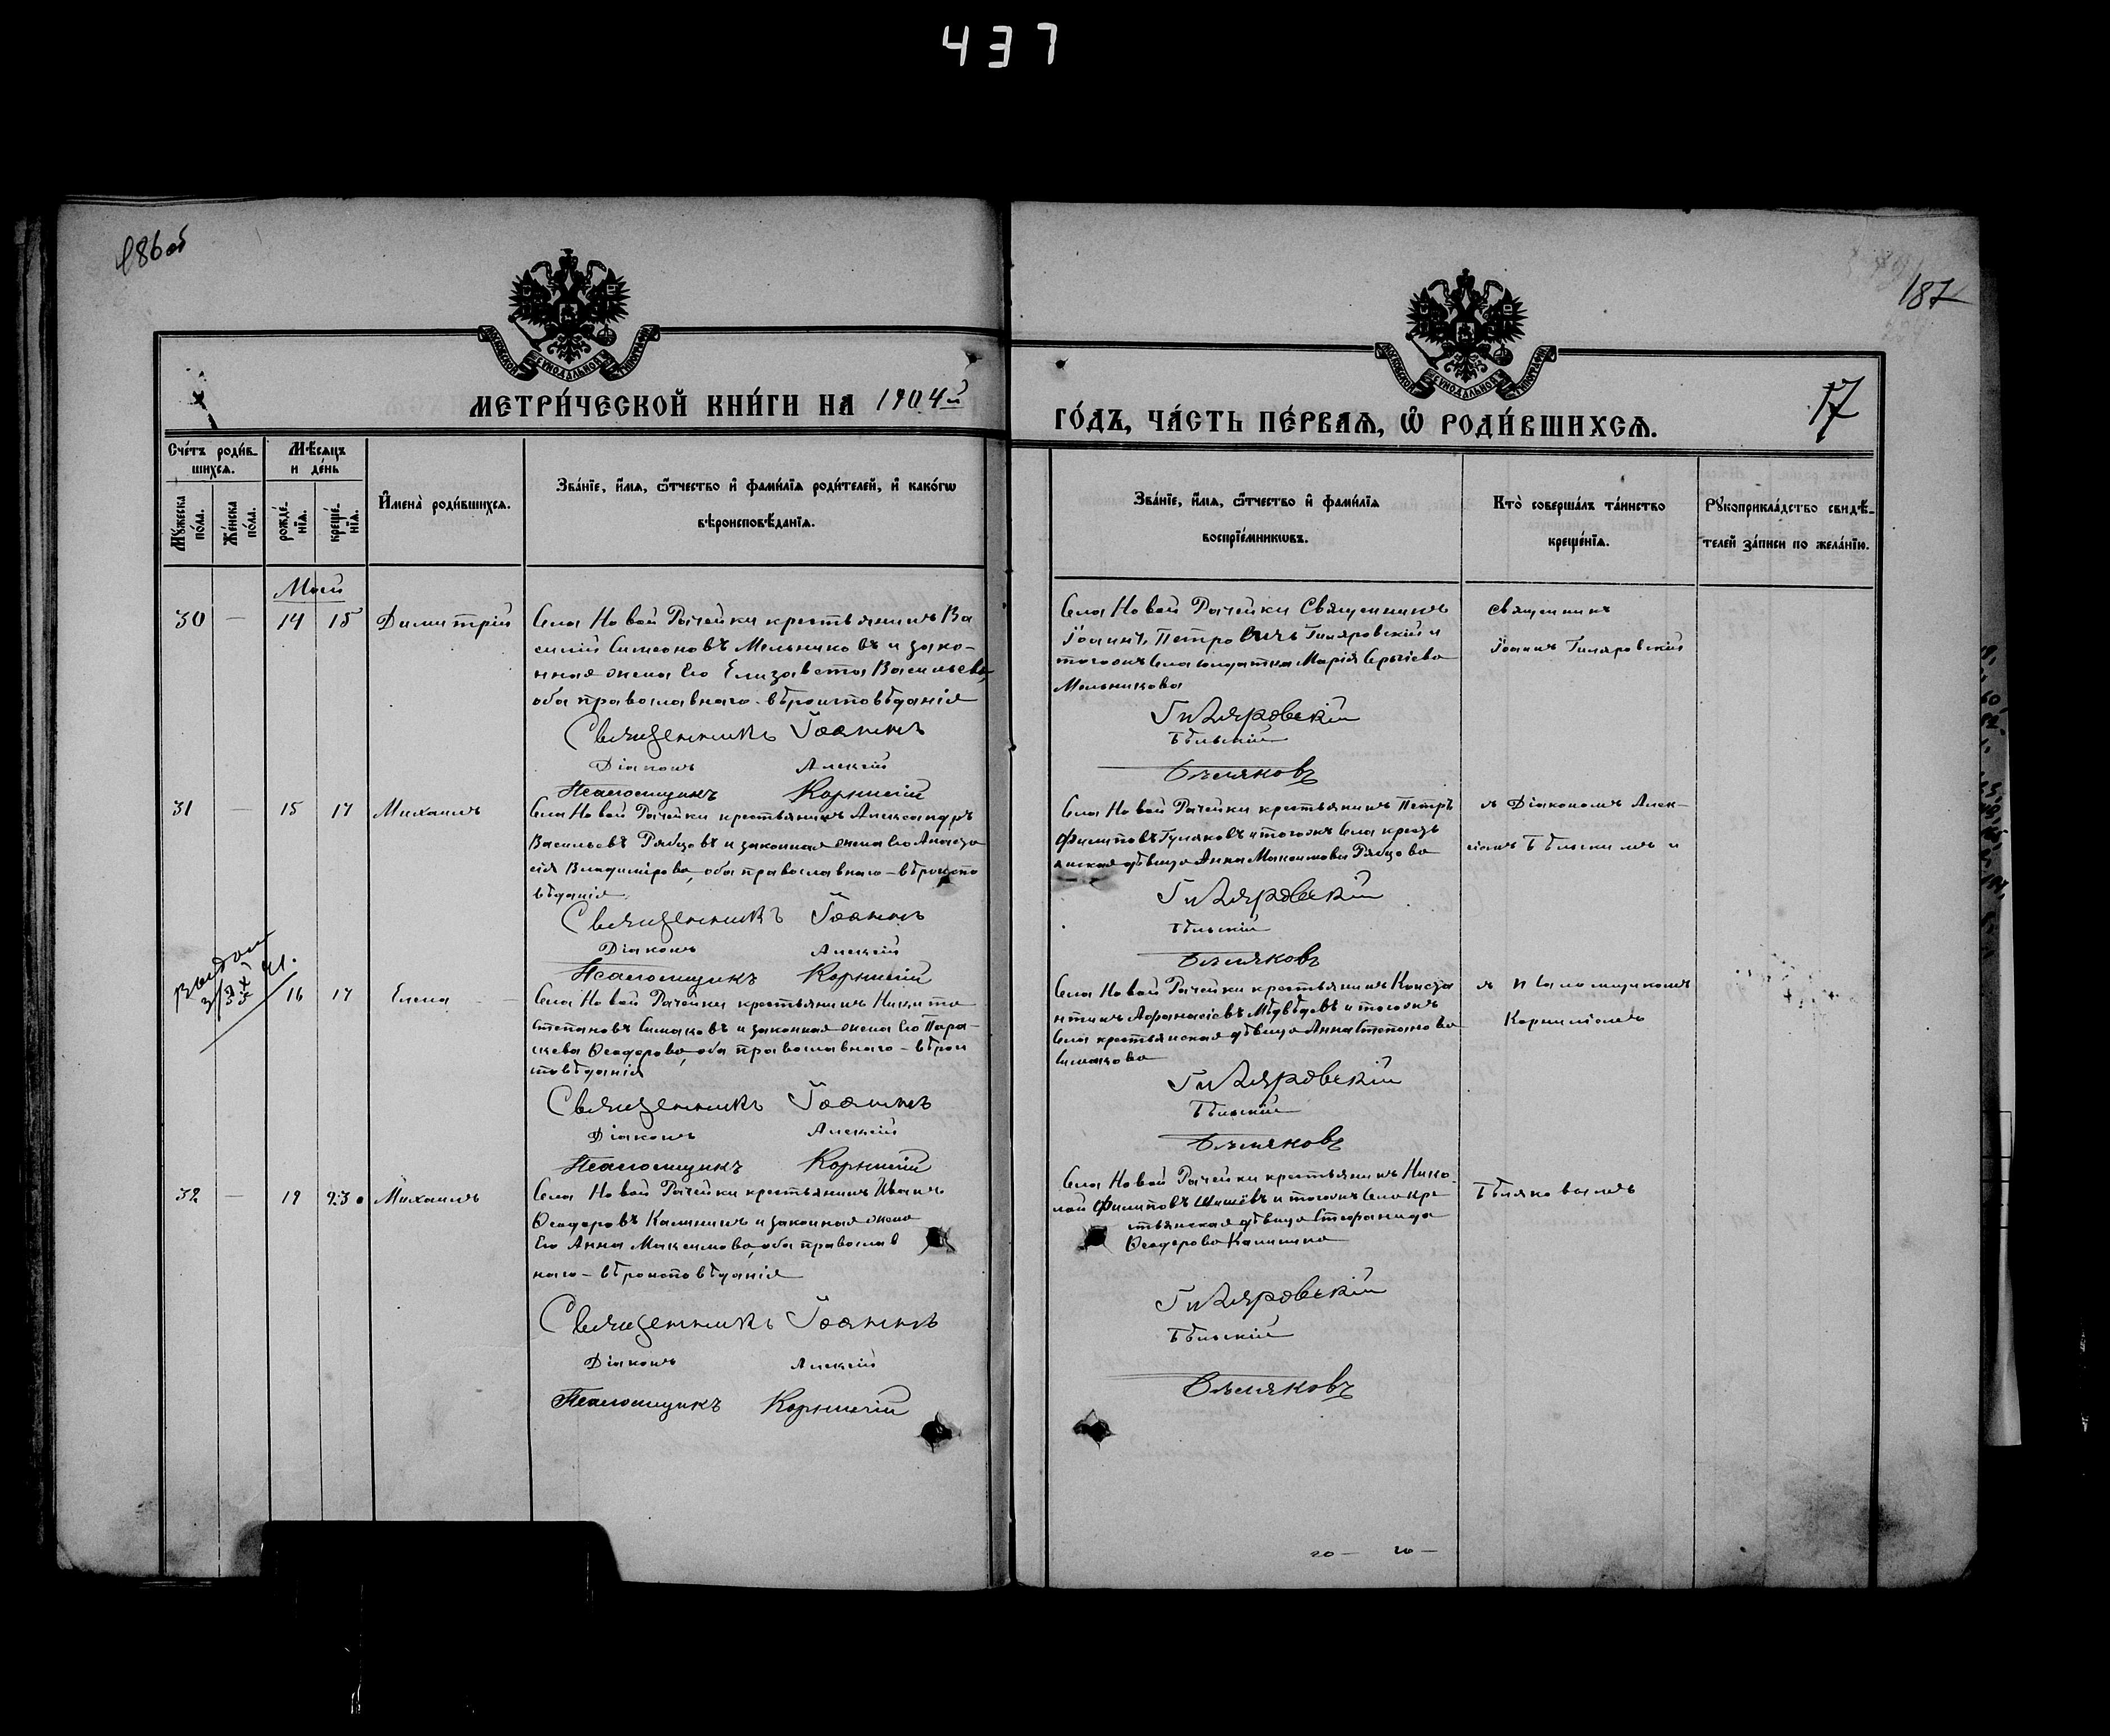 437
186об
187
17
МОСКОВСКОЙ СѴНОДАЛЬНОЙ ТИПОГРАФІИ
МОСКОВСКОЙ СѴНОДАЛЬНОЙ ТИПОГРАФІИ
МЕТРИ́ЧЕСКОЙ КНИ́ГИ НА 1904й
ГО́ДЪ, ЧА́СТЬ ПЕ́РВАѦ, Ѽ РОДИ́ВШИХСѦ.
Сче́тъ роди́в-
шихсѧ.
Мꙋ́жеска по́ла.
Же́нска по́ла.
Мѣ́сѧцъ
и де́нь
рожде́-
нїѧ.
креще́-
нїѧ.
И҆мена̀ роди́вшихсѧ.
Зва́нїе, и҆́мѧ, ѻ҆́тчество и҆ фами́лїѧ роди́телей, и҆ како́гѡ
вѣроисповѣ́данїѧ.
Зва́нїе, и҆́мѧ, ѻ҆́тчество и҆ фами́лїѧ
воспрїе́мникѡвъ.
Кто̀ соверша́лъ та́инство
креще́нїѧ.
Рꙋкоприкла́дство свидѣ́-
телей за́писи по жела́нїю.
Май
30 — 14 15 Димитрій
Села Новой Рачейки крестьянинъ Ва
силій Симеоновъ Мельниковъ и зако-
нная жена его Елизавета Васильева,
оба православнаго вѣроисповѣданія
Священникъ Іоаннъ
Діаконъ Алексій
Псаломщикъ Корнилій
Села Новой Рачейки Священникъ
Іоаннъ Петровичъ Гиляровскій и
тогоже села солдатка Марія Сергіева
Мельникова
Гиляровскій
Бѣльскій
Бѣляковъ
Священникъ
Іоаннъ Гиляровскій
31 — 15 17 Михаилъ
Села Новой Рачейки крестьянинъ Александръ
Васильевъ Рябцовъ и законная жена его Анаста
сія Владимірова, оба православнаго – вѣроиспо
вѣданія
Священникъ Іоаннъ
Діаконъ Алексій
Псаломщикъ Корнилій
Села Новой Рачейки крестьянинъ Петръ
Филиповъ Гуляковъ и тогоже села кресть
янская дѣвица Анна Максимова Рябцова
Гиляровскій
Бѣльскій
Бѣляковъ
съ Діакономъ Алек-
сіемъ Бѣльскимъ и
Выдан
3/IX 41.
16 17 Елена
Села Новой Рачейки крестьянинъ Никита
Степановъ Симаковъ и законная жена его Пара-
скева Ѳеодорова, оба православнаго – вѣрои
сповѣданія
Священникъ Іоаннъ
Діаконъ Алексій
Псаломщикъ Корнилій
Села Новой Рачейки крестьянинъКонста
нтинъ Афанасіевъ Медвѣдевъ и тогоже
села крестьянская дѣвица Анна Степанова
Симакова
Гиляровскій
Бѣльскій
Бѣляковъ
съ псаломщикомъ
Корниліемъ
32 — 19 23 Михаилъ
Села Новой Рачейки крестьянинъ Иванъ
Ѳеодоровъ Калининъ и законная жена
его Анна Максимова, оба православ
наго – вѣроисповѣданія
Священникъ Іоаннъ
Діаконъ Алексій
Псаломщикъ Корнилій
Села Новой Рачейки крестьянинъ Нико
лай Филиповъ Шишёвъ и тогоже села кре
стьянская дѣвица Стефанида
Ѳеодорова Калинина
Гиляровскій
Бѣльскій
Бѣляковъ
Бѣляковымъ